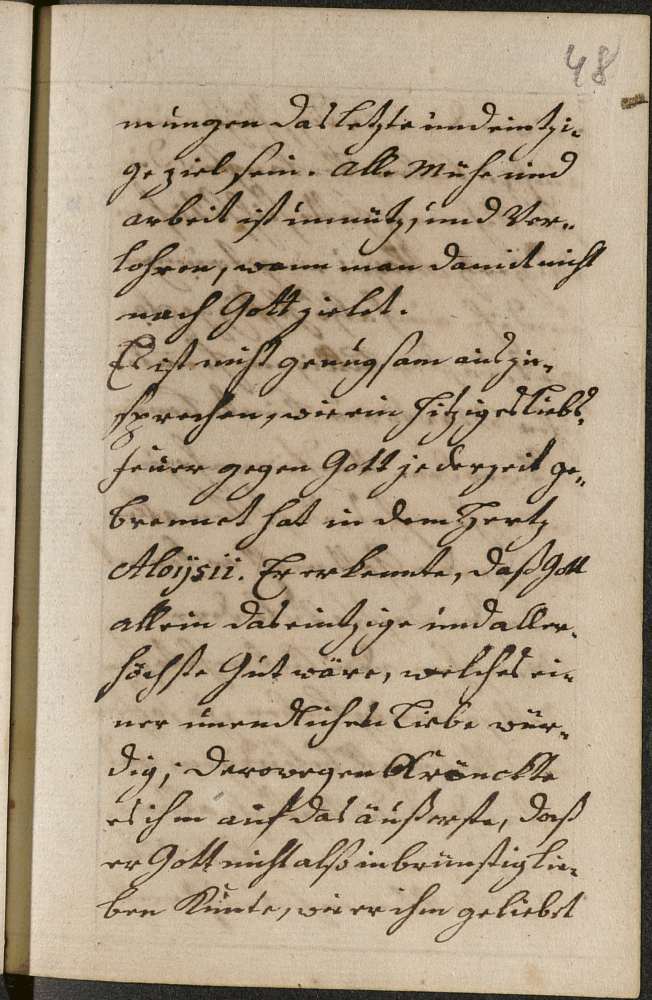 48
mungen das letzte und eintzi-
ge ziel sein. Alle Mühe und
arbeit ist unnütz, und Ver-
lohren, wann man damit nicht
nach Gott zielet.
Es ist nicht genugsam auszu-
sprechen, wie ein hitziges liebs-
feuer gegen Gott jederzeit ge-
brennet hat in dem Hertz
Aloÿsii. Er erkennte, daß Gott
allein das eintzige und aller-
höchste Gut wäre, welches ei-
ner unendlichen Liebe wür-
dig; derowegen Kränckte
es ihm auf das äußerste, daß
er Gott nicht alß inbrünstig lie-
ben Kunte, wie er ihm geliebet